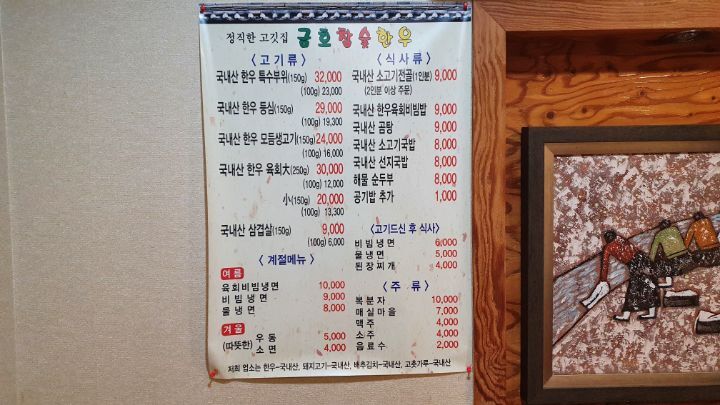 정직한 고깃집 금호참숯한우
<고기류>
국내산 한우 특수부위(150g) 32,000
(100g) 23,000
국내산 한우 등심(150g) 29,000
(100g) 19,300
국내산 한우 모듬생고기(150g) 24,000
(100g) 16,000
국내산 한우 육회大(250g) 30,000
(100g) 12,000
小(150g) 20,000
(100g) 13,300
국내산 삼겹살(150g) 9,000
(100g) 6,000
<계절메뉴>
여름
육회비빔냉면 10,000
비빔냉면 9,000
물냉면 8,000
겨울
(따뜻한) 우동 5,000
소면 4,000
<식사류>
국내산 소고기전골(1인분) 9,000
(2인분 이상 주문)
국내산 한우육회비빔밥 9,000
국내산 곰탕 9,000
국내산 소고기국밥 8,000
국내산 선지국밥 8,000
해물 순두부 8,000
공기밥 추가 1,000
<고기드신 후 식사>
비빔냉면 6,000
물냉면 5,000
된장찌개 4,000
<주류>
복분자 10,000
매실마을 7,000
맥주 4,000
소주 4,000
음료수 2,000
저희 업소는 한우-국내산, 돼지고기-국내산, 배추김치-국내산, 고춧가루-국내산